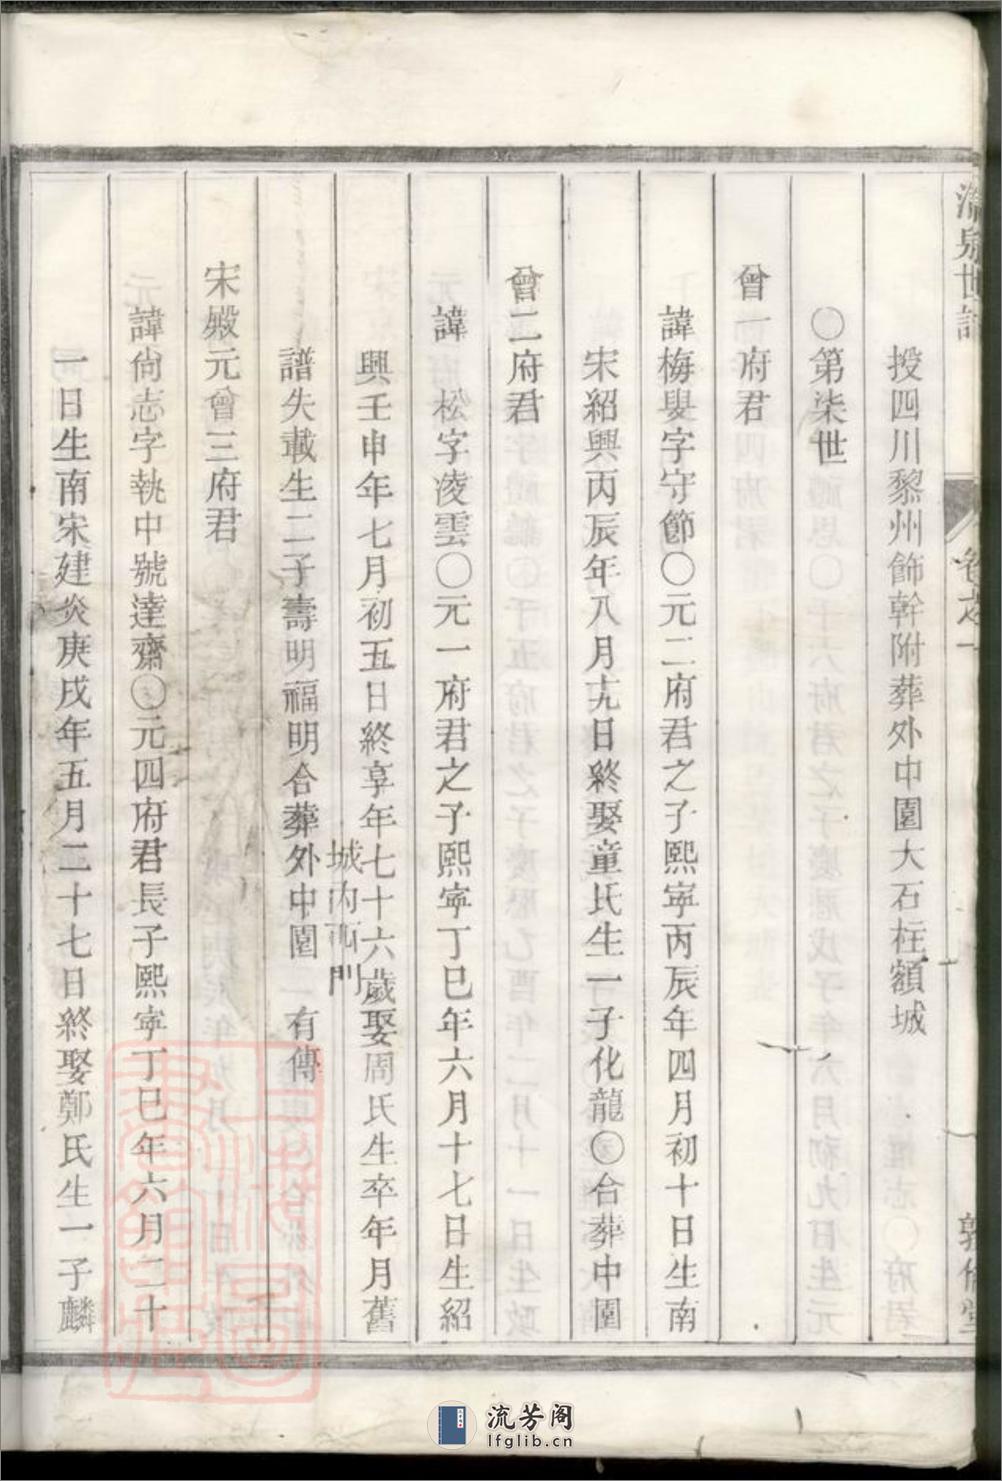 投四川黎州飾幹附葬外中園大石柱額城
〇第柒世
曾一府君
諱梅叟字守節〇元二府君之子熙寧丙辰年四月初十日生南
宋紹興丙辰年八月十九日終娶童氏生一子化龍〇合葬中園
曾二府君
諱松字凌雲〇元一府君之子熙寧丁巳年六月十七日生紹
興壬申年七月初五日終享年七十六歲娶周氏生卒年月舊
城內西門
譜失載生二子壽明福明合葬外中園 有傳
宋殿元曾三府君
諱尙志字執中號達齋〇元四府君長子熙寧丁巳年六月二十
一日生南宋建炎庚戌年五月二十七日終娶鄭氏生一子麟
世譜
卷之一
敦倫堂
流芳阁
lfglib.cn